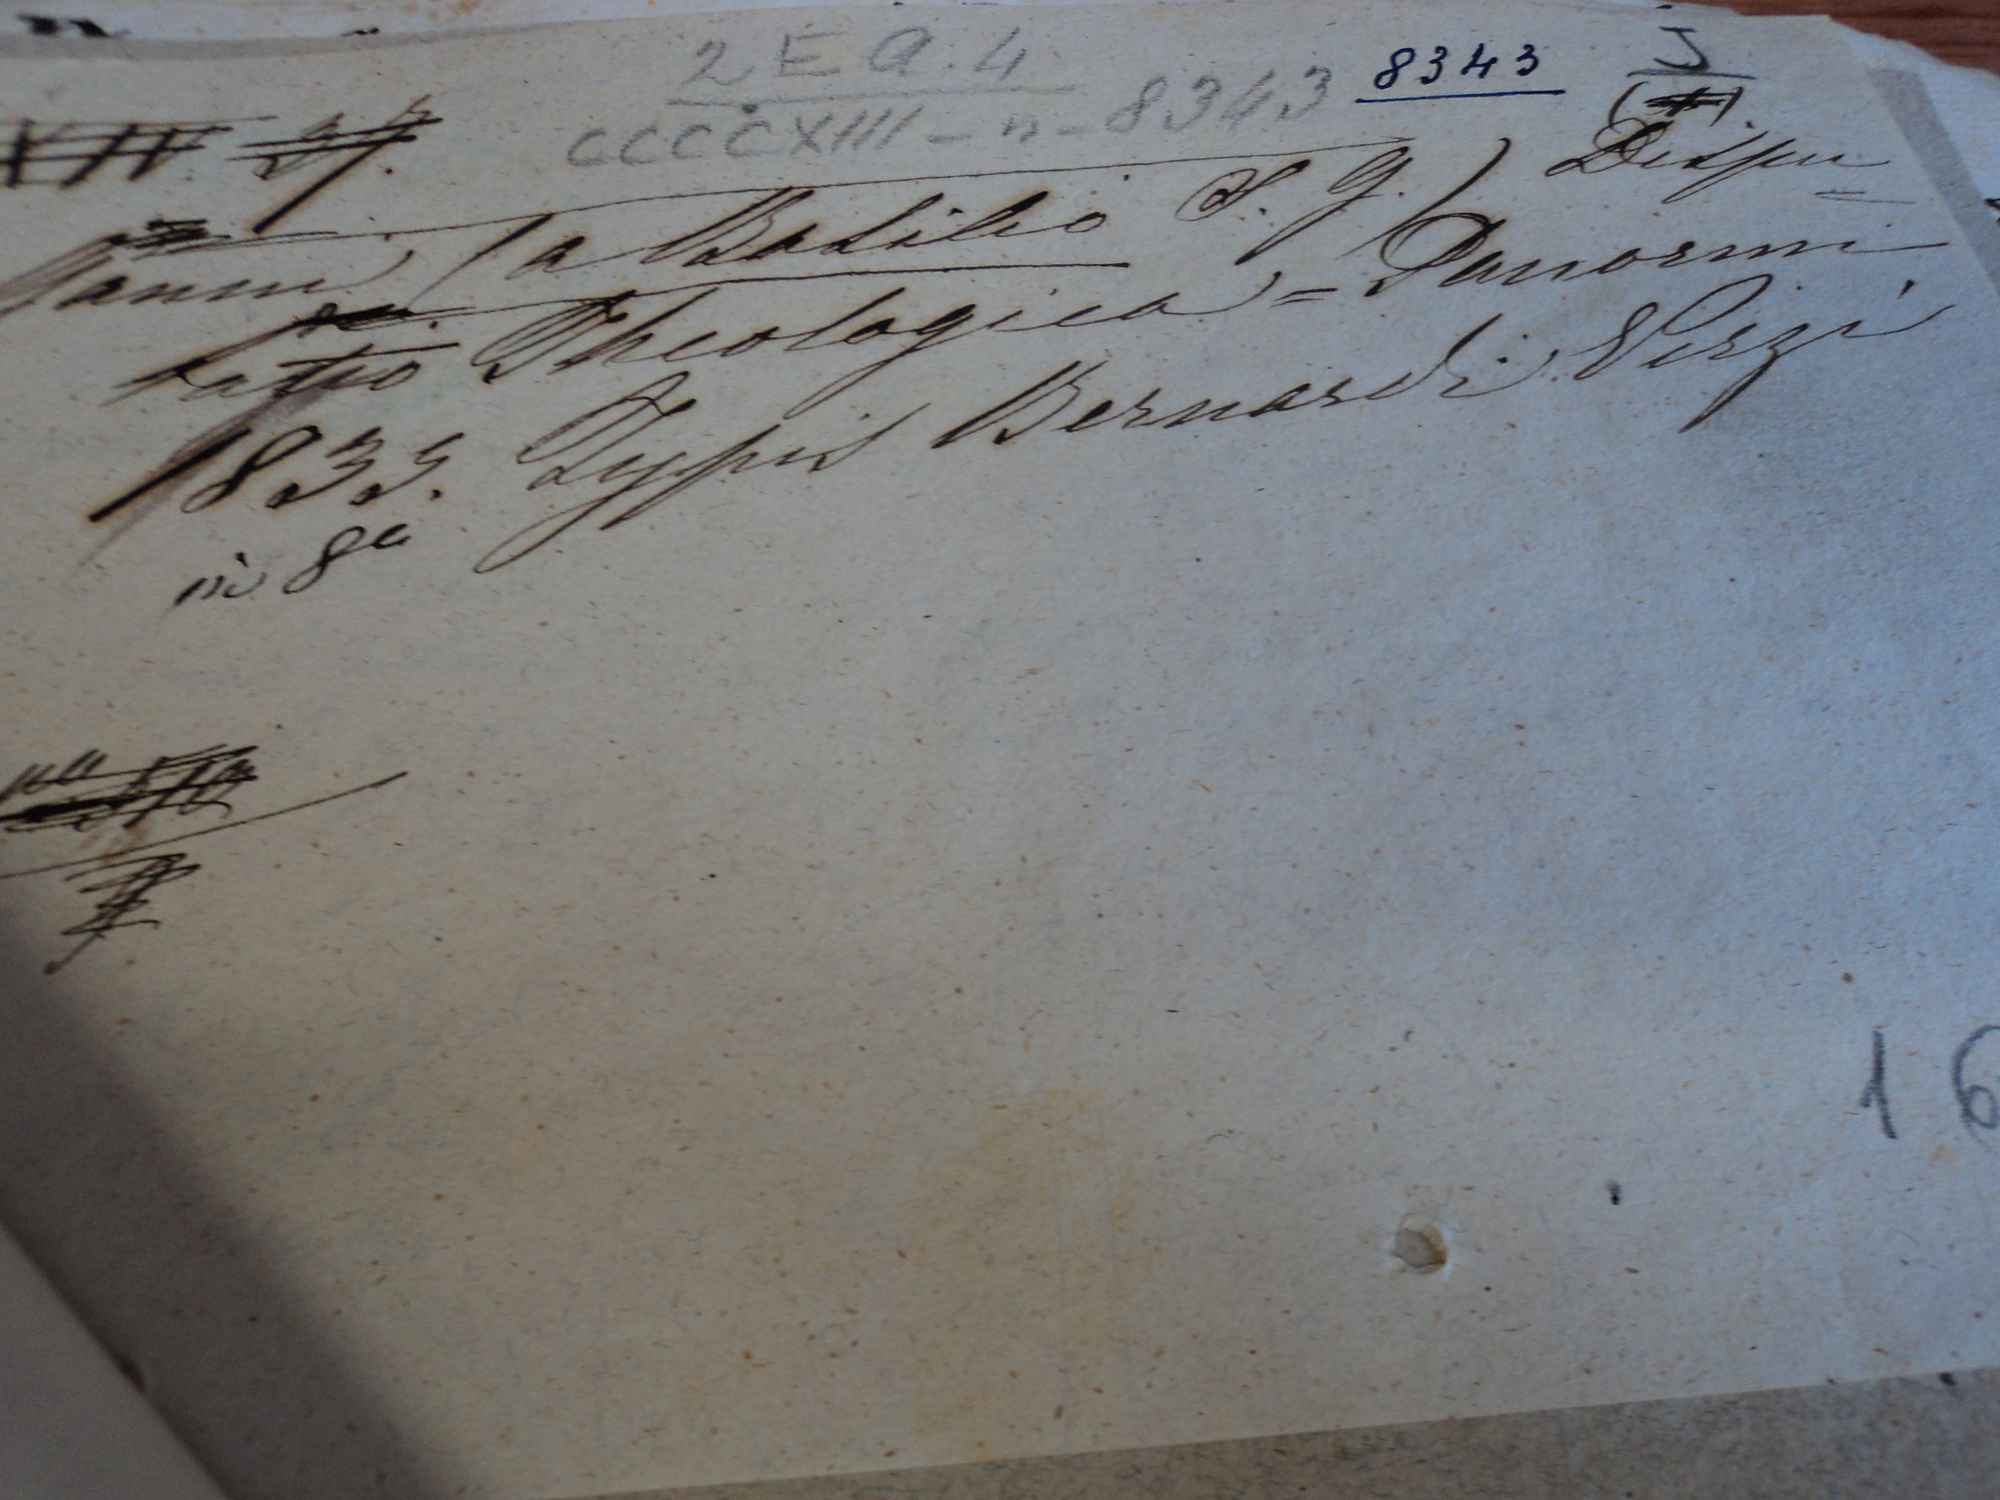 2 E Q. 4
CCCCXIII - n - 8343 8343 J
Janni (a Basilio S. J.) Dispu
tatio Theologica = Panormi
1835. Typis Bernardi Virzi
in 8a
16